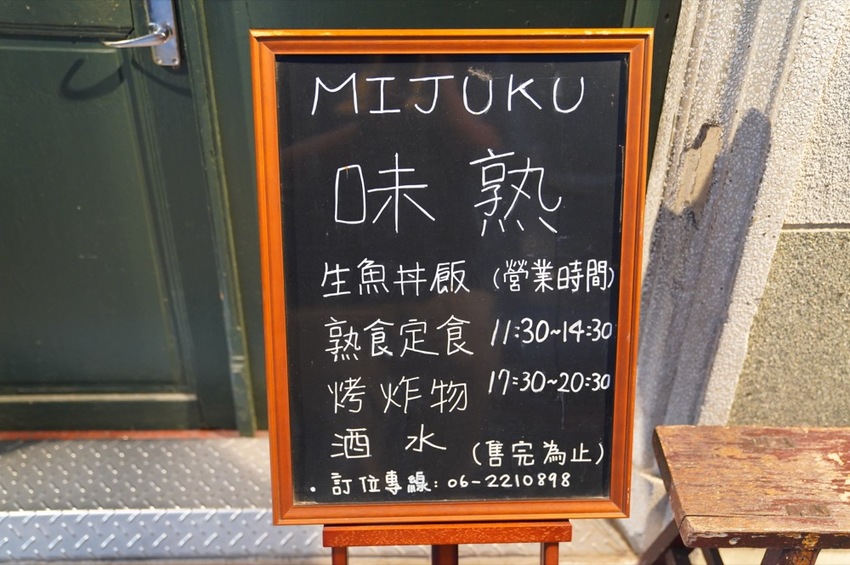 MIJUKU
味熟
生魚丼飯 (營業時間)
熟食定食 11:30~14:30
烤炸物 17:30~20:30
酒水 (售完為止)
·訂位專線:06-2210898